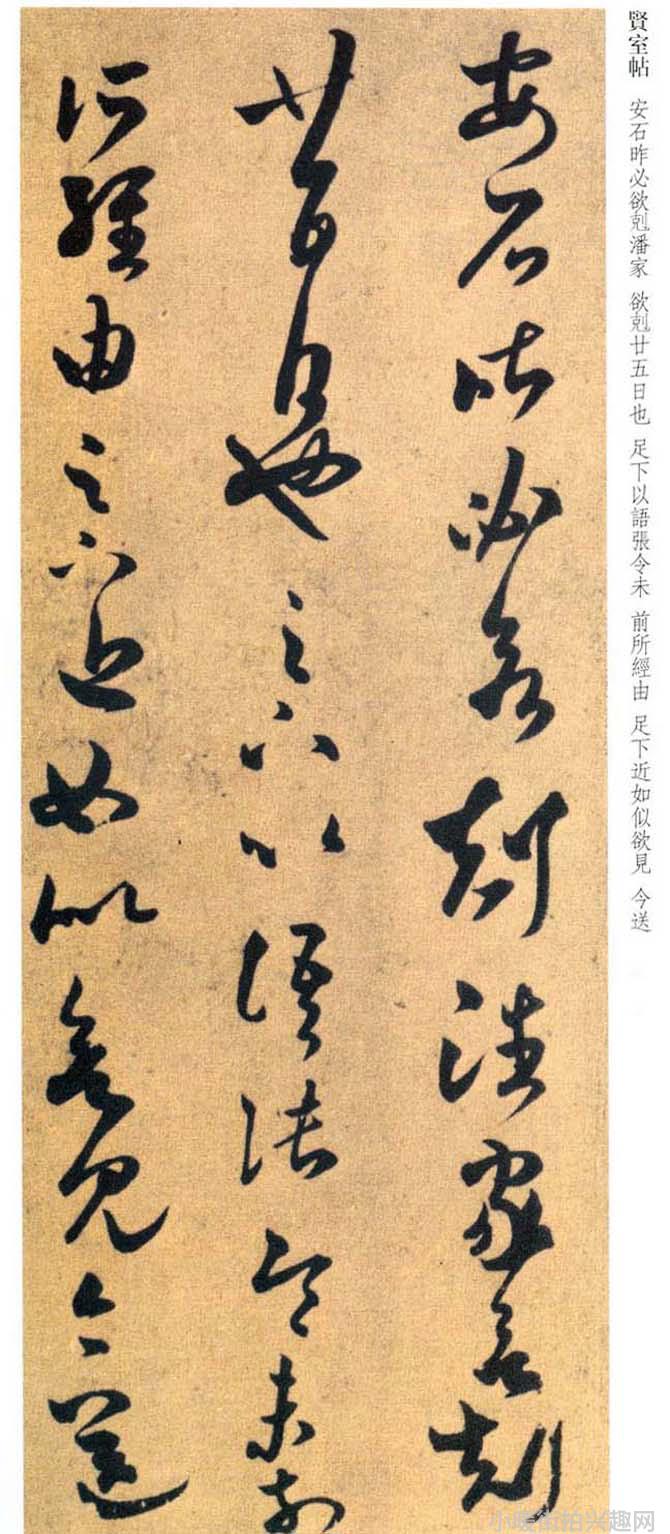 賢室帖 安石昨必欲剋潘家 欲剋廿五日也 足下以語張令未 前所經由 足下近如似欲見 今送
安石昨必欲剋潘家欲剋
廿五日也足下以語張令未前
所經由足下近如似欲見今送
小暖街拍兴趣网